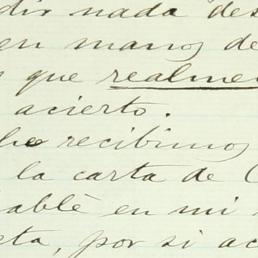 dir nada des
en manos de
que realmen
acierto.
he recibimos
la carta de C
ablè en mi
sta, por si ac